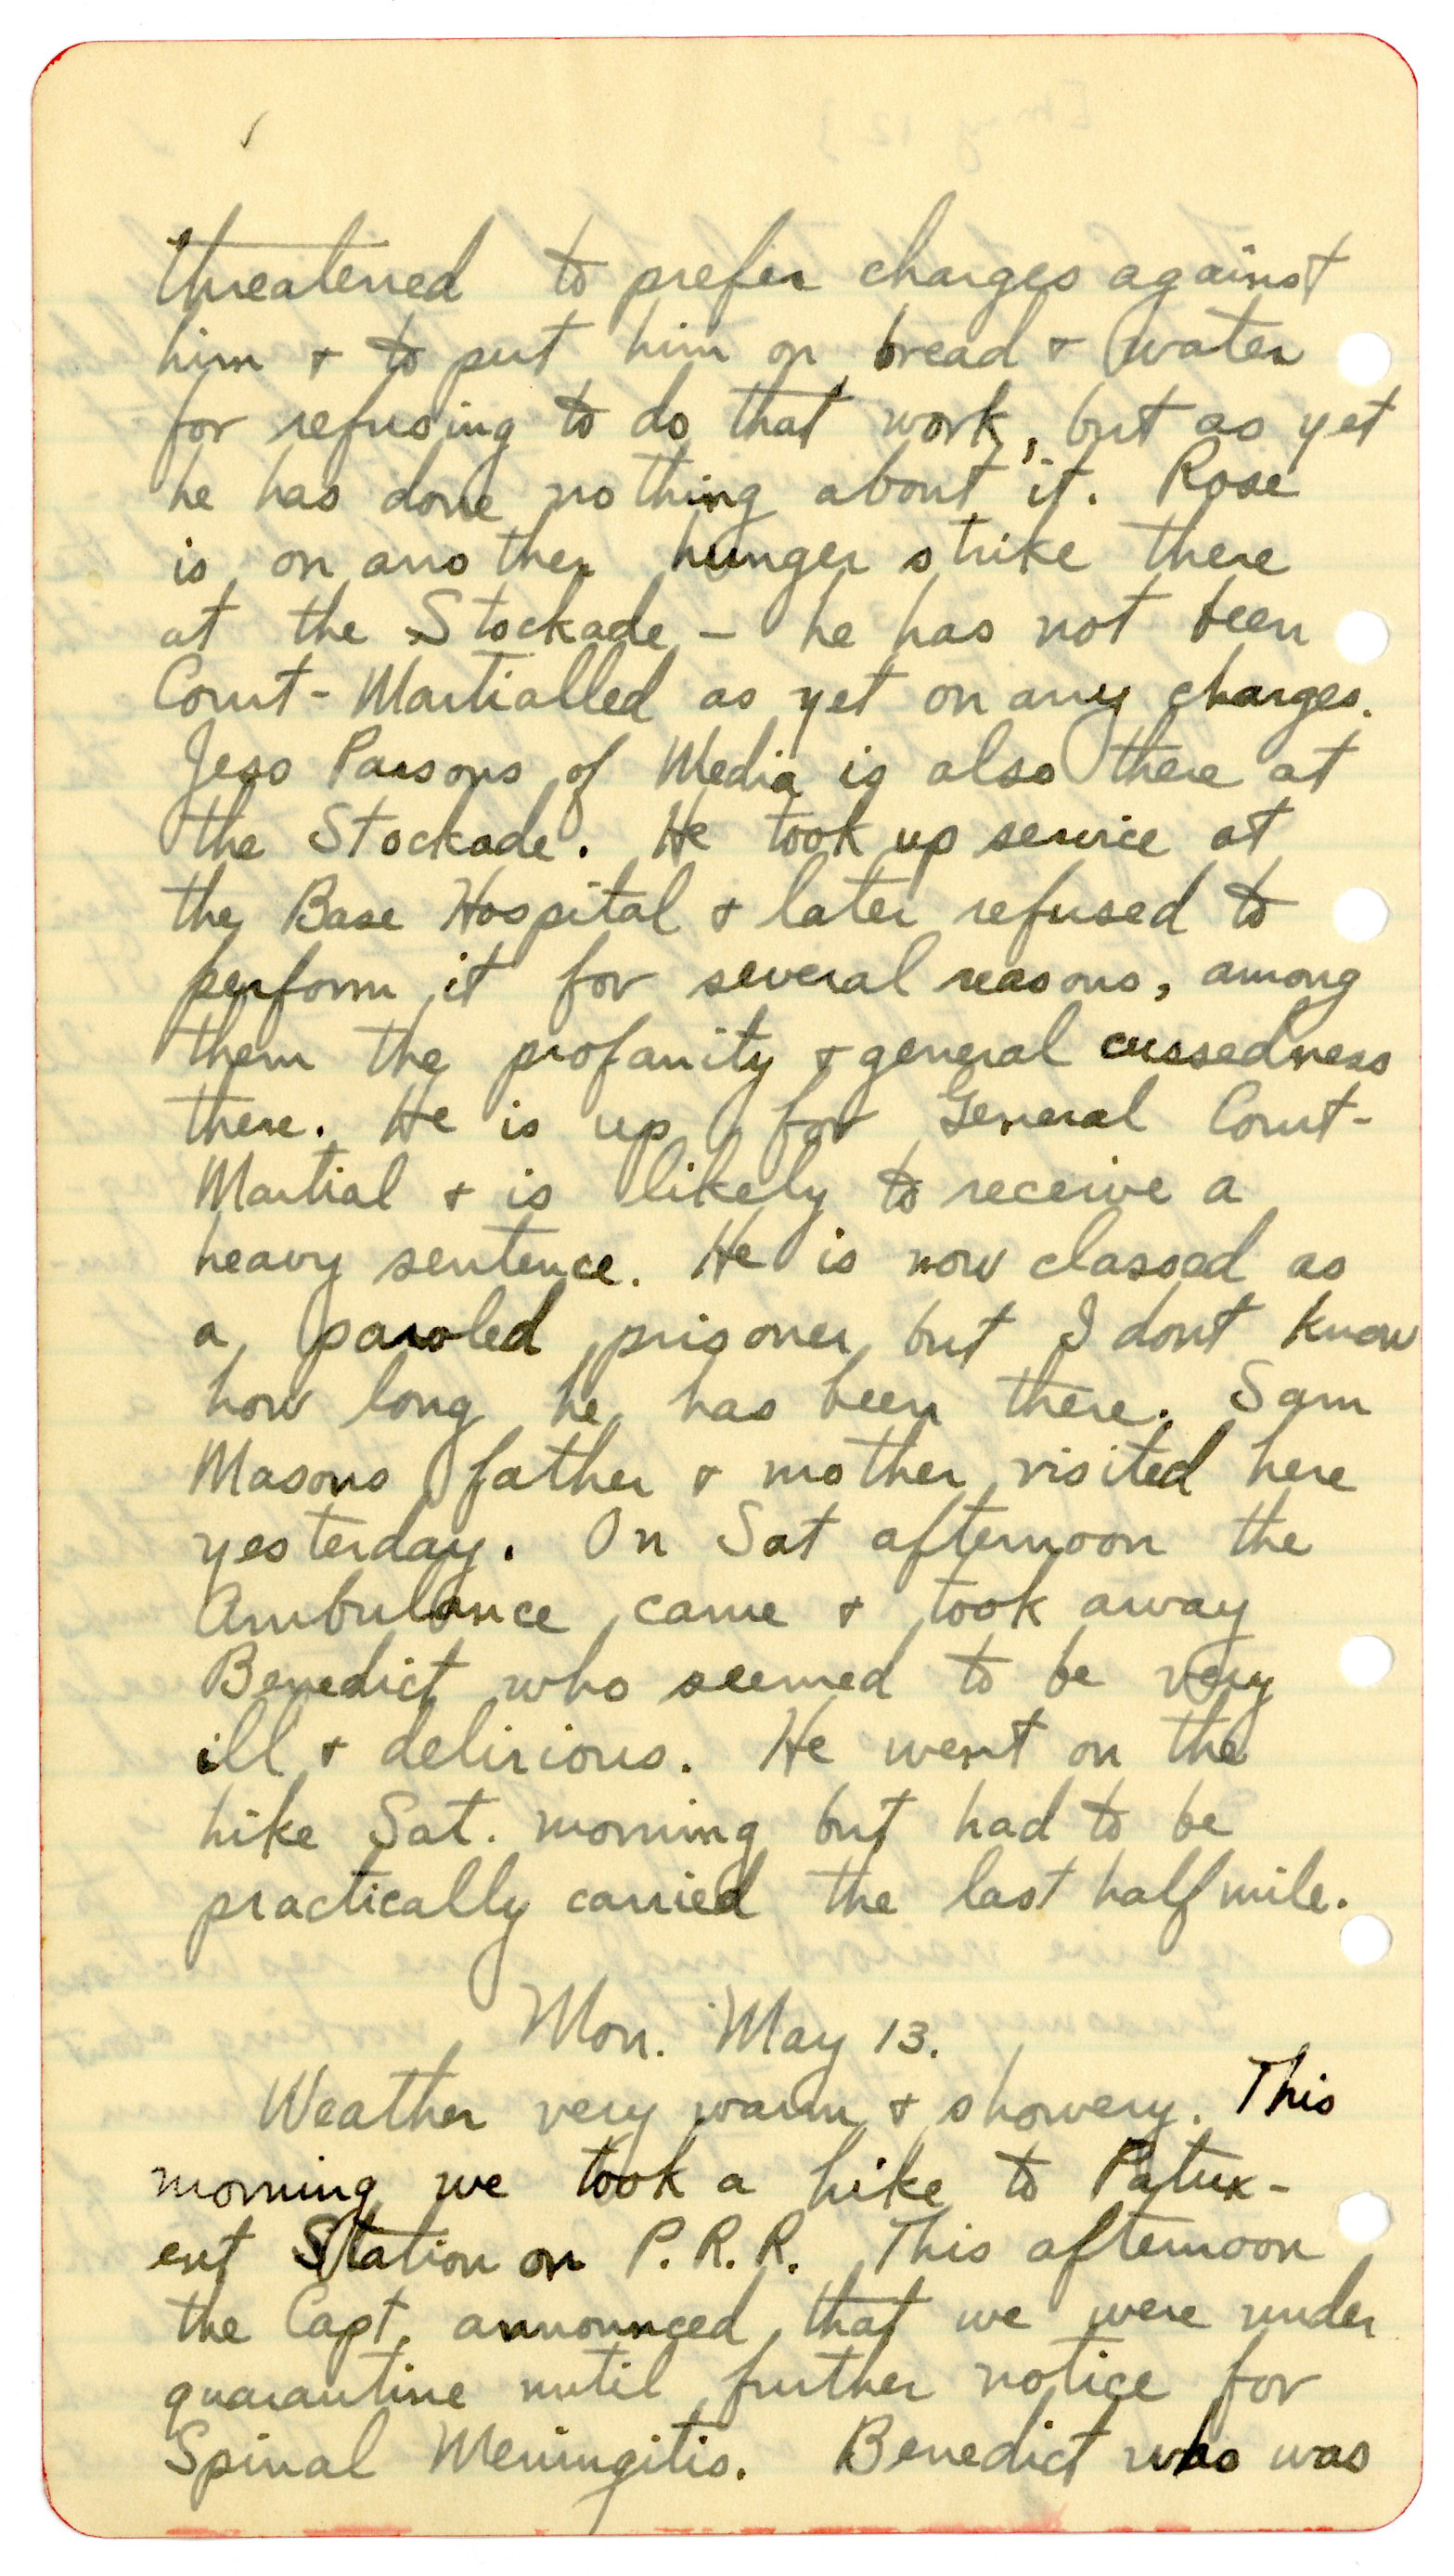 threatened to prefer charges against
him & to put him on bread & water
for refusing to do that work, but as yet
he has done nothing about it. Rose
is on another hunger strike there
at the Stockade – he has not been
Court-Martialled as yet on any charges.
Jess Parsons of Media is also there at
the Stockade. He took up service at
the Base Hospital & later refused to
perform it for several reasons, among
them the profanity & general cussedness
there. He is up for General Court-
Martial & is likely to receive a
heavy sentence. He is now classed as
a paroled prisoner but I dont know
how long he has been there. Sam
Masons father & mother visited here
yesterday. On Sat afternoon the
Ambulance came & took away
Benedict who seemed to be very
ill & delirious. He went on the
hike Sat. morning but had to be
practically carried the last half mile.
Mon. May 13.
Weather very warm & showery. This
morning we took a hike to Patux-
ent Station on P.R.R. This afternoon
the Capt. announced that we were under
quarantine until further notice for
Spinal Meningitis. Benedict who was